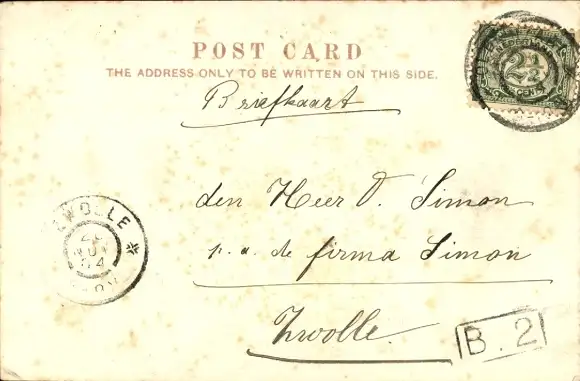 POST CARD
THE ADDRESS ONLY TO BE WRITTEN ON THIS SIDE.
Briefkaart
NEDERLAND
2½
CENT
den Heer O. Simon
p. a. de firma Simon
Zwolle
ZWOLLE
04
B. 2